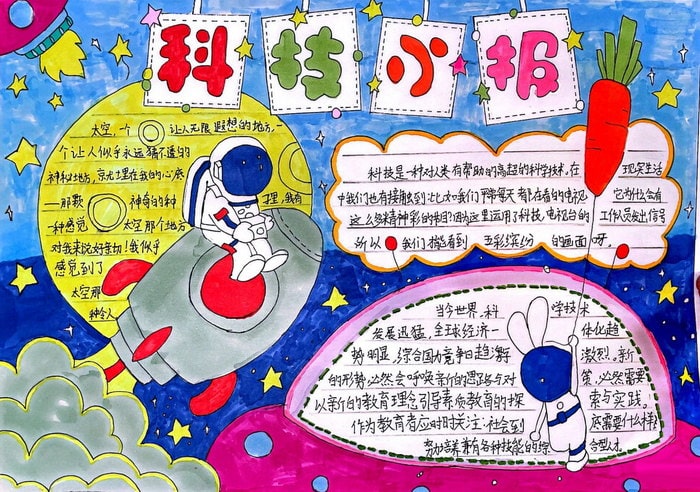 科技小报
太空,一个让人无限遐想的地方,一
个让人似乎永远猜不透的
神秘地方,宗尤埋在我的心底
一那颗神奇的种子里,我有
一种感觉太空那个地方
对我来说好亲切!我似乎
感觉到了
太空那
种令人
科技是一种对人类有帮助的高超的科学技术,在现实生活
中我们也有接触到:比如我们平常每天都在看的电视它为什么会有
这么多精神彩的节目?因为这里运用了科技,电视台的工作人员发出信号
所以我们才能看到五彩缤纷的画面呀。
当今世界,科学技术
发展迅猛,全球经济一体化趋
势明显,综合国力竞争日趋激烈。新
的形势必然会呼唤新的思路与对策,必然需要
以新的教育理念引导素质教育的探索与实践。
作为教育者应时时关注:社会到底需要什么样
努力培养有各种技能的综合型人才